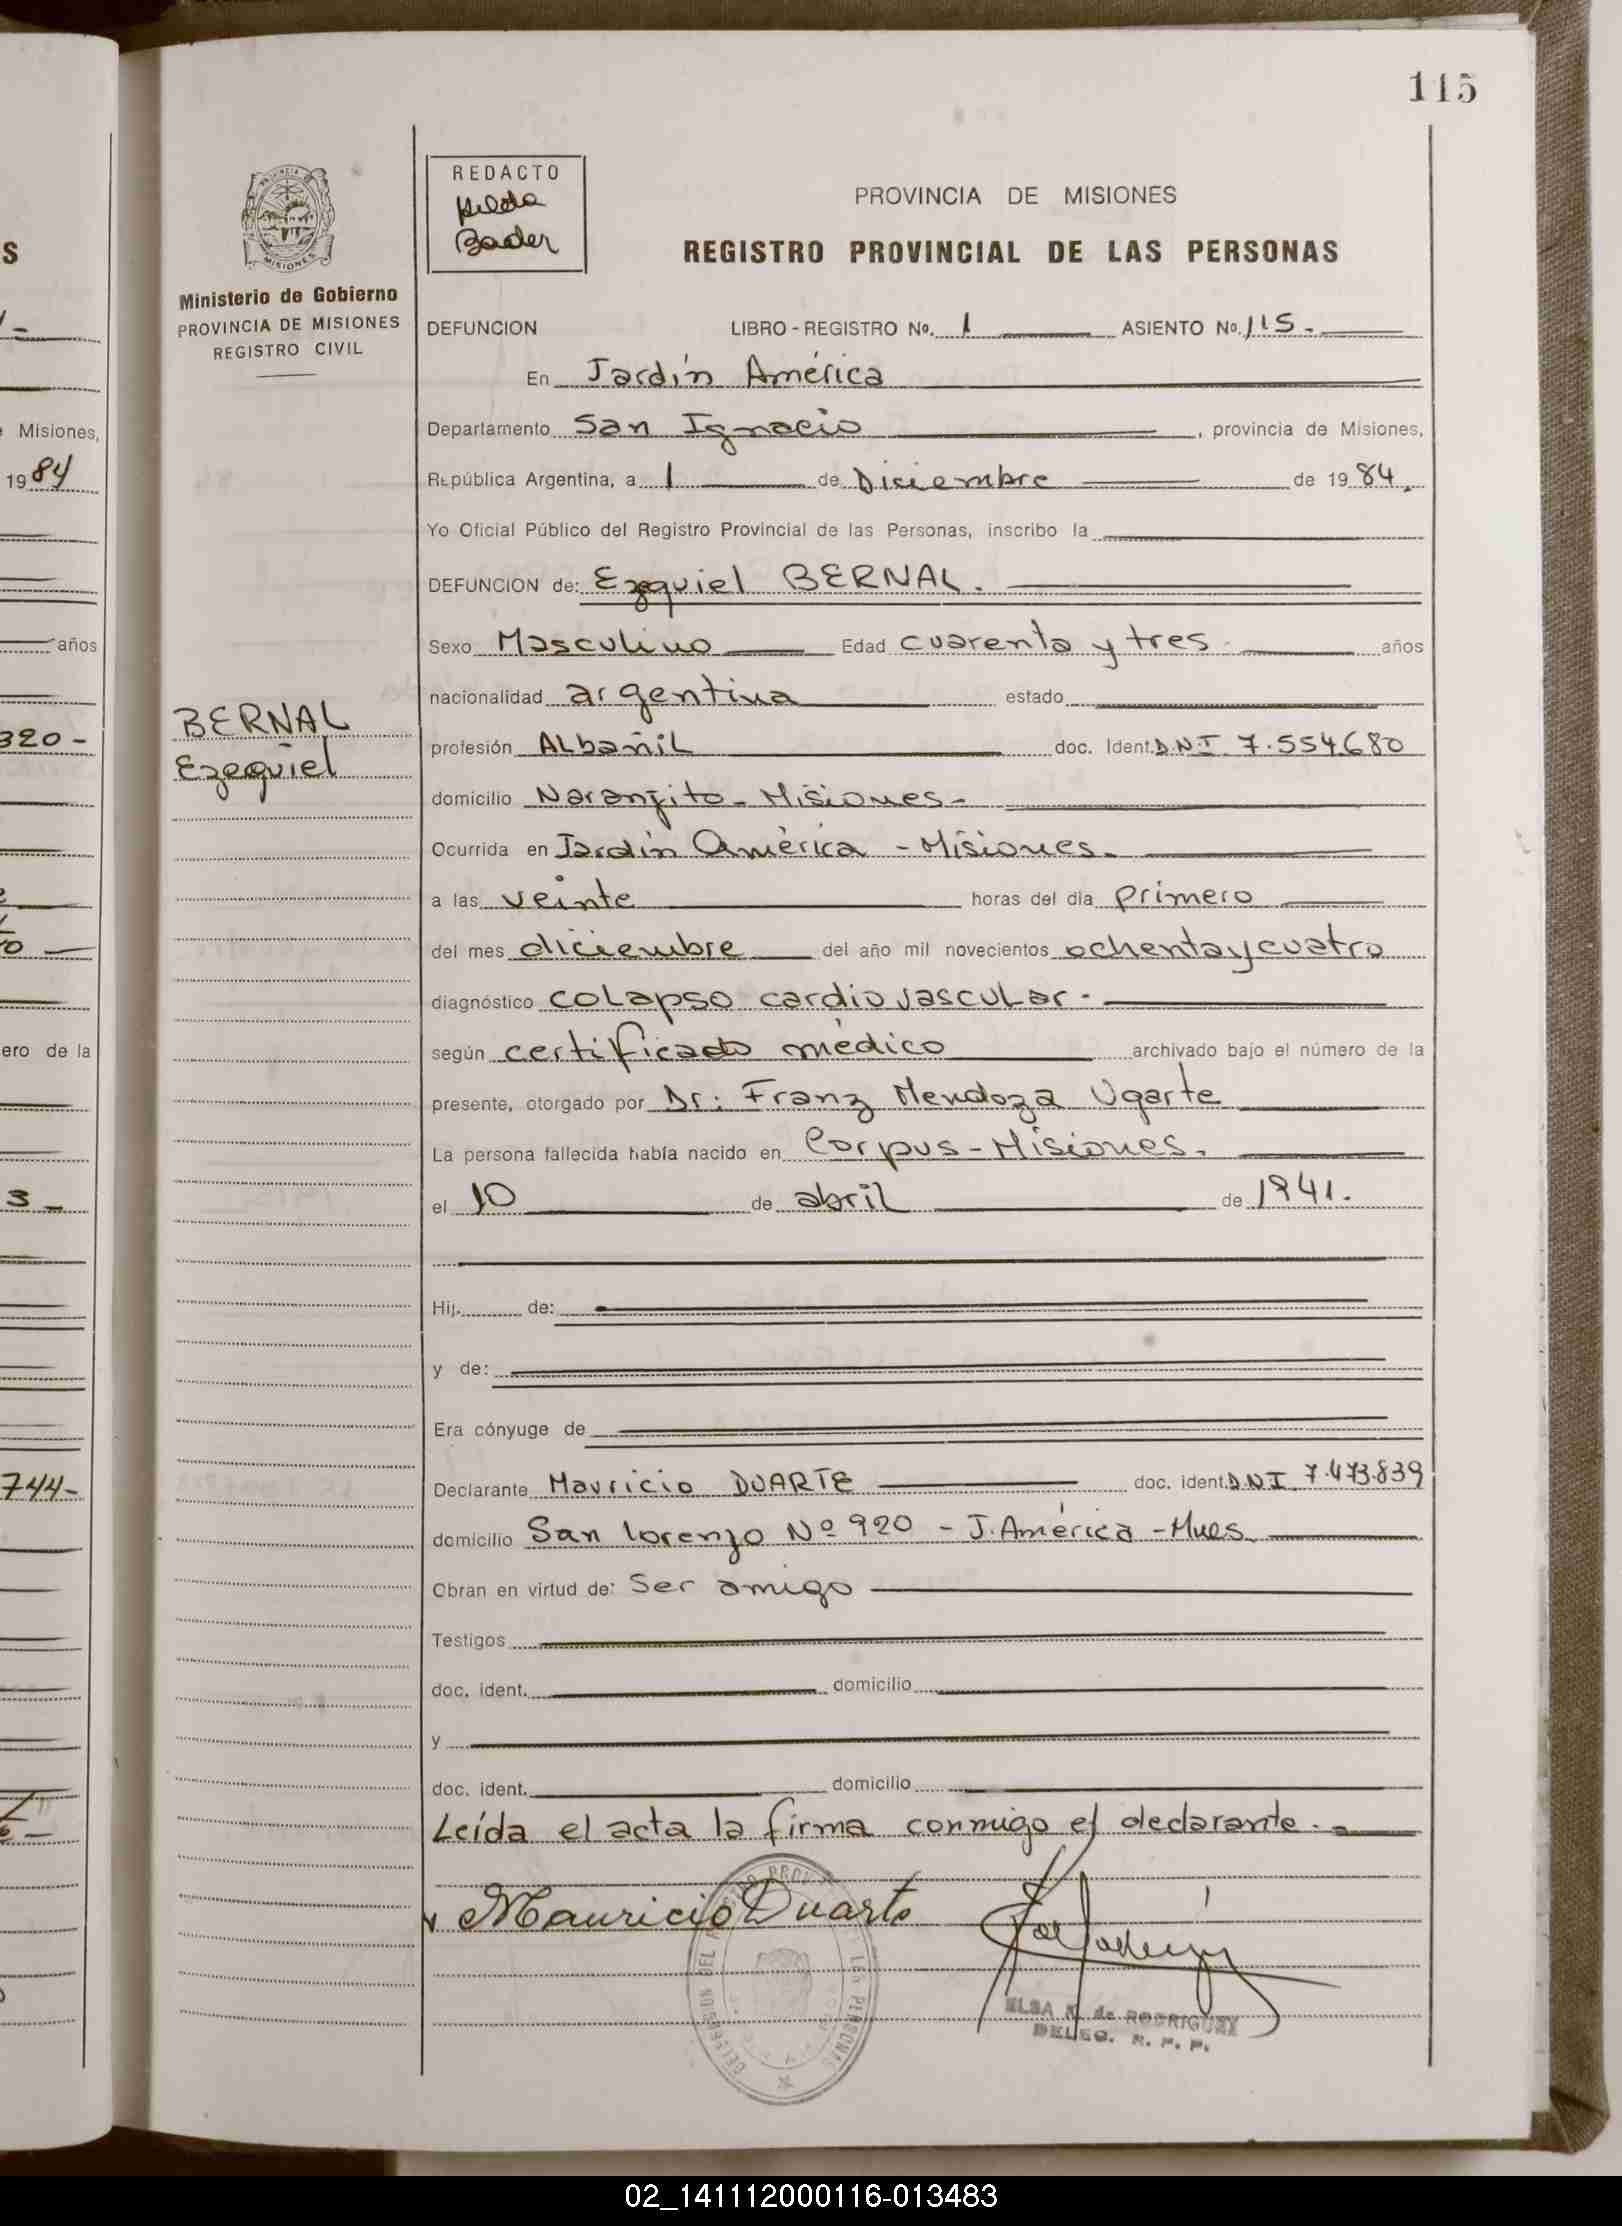 115
REDACTO
Hilda
Bader
PROVINCIA DE MISIONES
REGISTRO PROVINCIAL DE LAS PERSONAS
MISIONES
Ministerio de Gobierno
PROVINCIA DE MISIONES
REGISTRO CIVIL
DEFUNCION LIBRO - REGISTRO No. 1 ASIENTO No. 115.-
En Jardín América
Departamento San Ignacio, provincia de Misiones,
República Argentina, a 1 de Diciembre de 1984.
Yo Oficial Público del Registro Provincial de las Personas, inscribo la
DEFUNCION de: Ezequiel BERNAL.
Sexo Masculino Edad cuarenta y tres años
BERNAL
Ezequiel
nacionalidad argentina estado
profesión Albañil doc. Ident. D.N.I. 7.554.680
domicilio Naranjito - Misiones -
Ocurrida en Jardín América - Misiones.
a las veinte horas del día primero
del mes diciembre del año mil novecientos ochenta y cuatro
diagnóstico colapso cardiovascular.
según certificado médico archivado bajo el número de la
presente, otorgado por Dr: Franz Mendoza Ugarte
La persona fallecida había nacido en Corpus - Misiones.
el 10 de abril de 1941.
Hij. de:
y de:
Era cónyuge de
Declarante Mauricio DUARTE doc. ident. D.N.I. 7.473.839
domicilio San Lorenzo Nº 920 - J. América - Mnes.
Obran en virtud de: Ser amigo
Testigos
doc. ident. domicilio
y
doc. ident. domicilio
Leída el acta la firma conmigo el declarante.
Mauricio Duarte
de RODRIGUEZ
DELEG. R. P. P.
S
Misiones,
1984
años
320-
ero de la
3-
744-
02_141112000116-013483